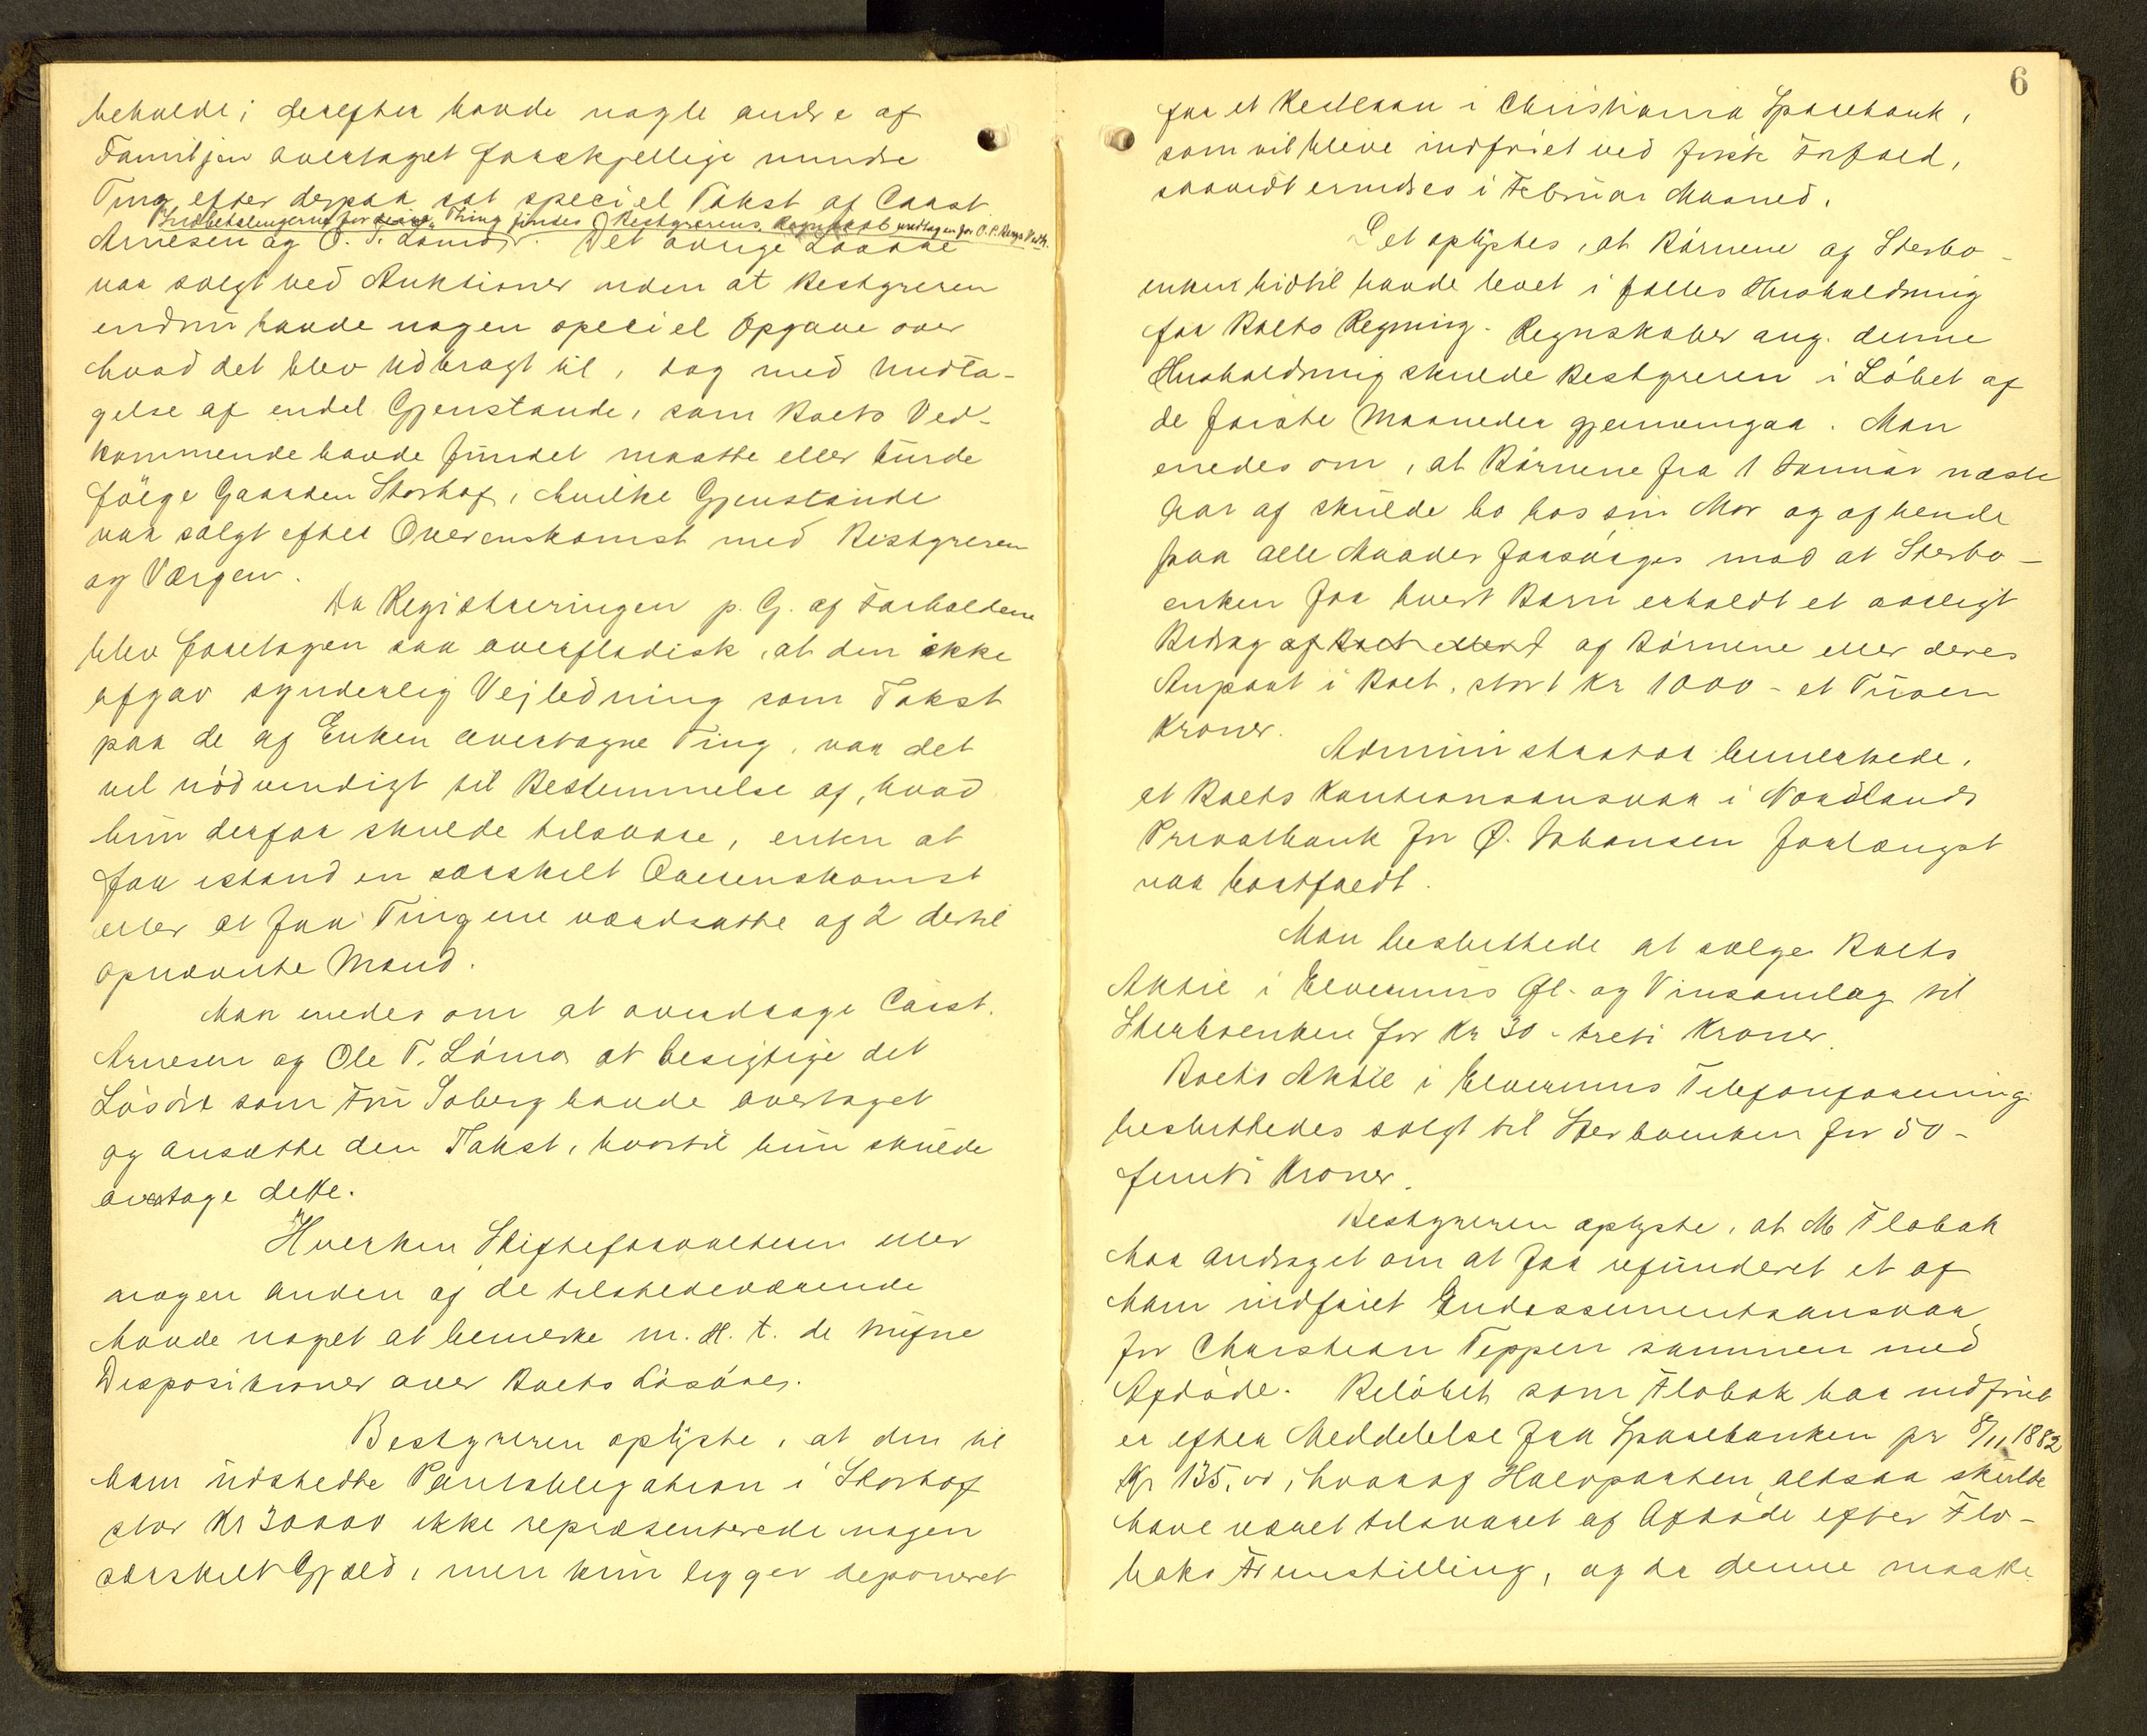 beholde; derefter havde nogle andre af
Familjen overtaget forskjellige mindre
Ting efter derpaa sat speciel Takst af Carst
Indbetalingerne for disse Thing findes i Bestyrerens Regnskab undtagen for O. P.
Arnesen og O. T. Lömo. Det övrige Lösöre
var solgt ved Auktioner uden at Bestyreren
endnu havde nogen speciel Opgave over
hvad det blev udbragt til, dog med Undta-
gelse af endel Gjenstande, som Boets Ved-
kommende havde fundet maatte eller burde
fölge Gaarden Storhof, hvilke Gjenstande
var solgt efter Overenskomst med Bestyreren
og Værgen.
Da Registreringen p. G. af Forholdene
blev foretagen saa overfladisk, at den ikke
afgav synderlig Vejledning som Takst
paa de af Enken overtagne Ting, var det
vel nödvendigt til Bestemmelse af, hvad
hun derfor skulde tilsvare, enten at
faa istand en særskilt Overenskomst
eller at faa Tingene værdsatte af 2 dertil
opnævnte Mænd.
Man enedes om at overdrage Carst.
Arnesen og Ole T. Lömo at besigtige det
Lösöre som Fru Soberg havde overtaget
og ansætte den Takst, hvortil hun skulde
overtage dette.
Hverken Skifteforvalteren eller
nogen anden af de tilstedeværende
havde noget at bemerke m. H. t. de trufne
Dispositioner over Boets Lösöre.
Bestyreren oplyste, at den til
ham udstedte Pantobligation i Storhof
stor Kr 30000 ikke repræsenterede nogen
særskilt Gjæld, men kun ligger deponeret
6
for et Vexellaan i Christiania Sparebank,
som vil blive indfriet ved förste Forfald,
saavidt erindres i Februar Maaned.
Det oplystes, at Börnene og Sterbo-
enken hidtil havde levet i fælles Husholdning
for Boets Regning. Regnskaber ang. denne
Husholdning skulde Bestyreren i Löbet af
de förste Maaneder gjennemgaa. Man
enedes om, at Börnene fra 1 Januar næste
Aar af skulde bo hos sin Mor og af hende
paa alle Maader forsörges mod at Sterbo-
enken for hvert Barn erholdt et aarligt
Bidrag af Boet eller af Börnene eller deres
Anpart i Boet, stort Kr 1000 - et Tusen
Kroner.
Administrator bemerkede,
at Boets Kautionsansvar i Nordlands
Privatbank for Ø. Johansen forlængst
var bortfaldt.
Man besluttede at sælge Boets
Aktie i Elverums Øl- og Vinsamlag til
Sterboenken for Kr 30 - treti Kroner.
Boets Aktie i Elverums Telefonforening
besluttedes solgt til Sterboenken for 50-
femti Kroner.
Bestyreren oplyste, at M Flobak
har andraget om at faa refunderet et af
ham indfriet Endossementsansvar
for Christian Teppen sammen med
Afdöde. Belöbet som Flobak har indfriet
er efter Meddelelse fra Sparebanken pr 8/11 1882
Kr 135,00, hvoraf Halvparten altsaa skulde
have været tilsvaret af Afdöde efter Flo-
baks Fremstilling, og da denne maatte